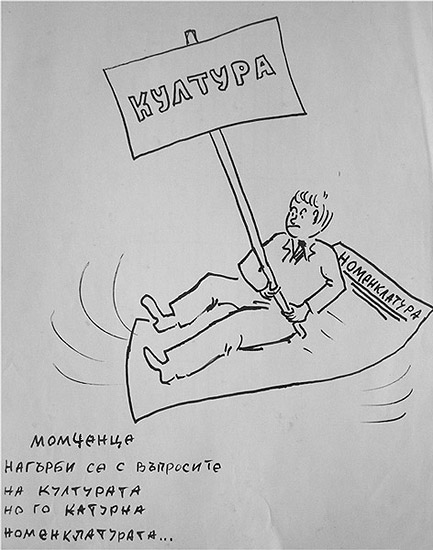 КУЛТУРА
НОМЕНКЛАТУРА
МОМЧЕНЦЕ
НАГЪРБИ СЕ С ВЪПРОСИТЕ
НА КУЛТУРАТА
НО ГО КАТУРНА
НОМЕНКЛАТУРАТА...